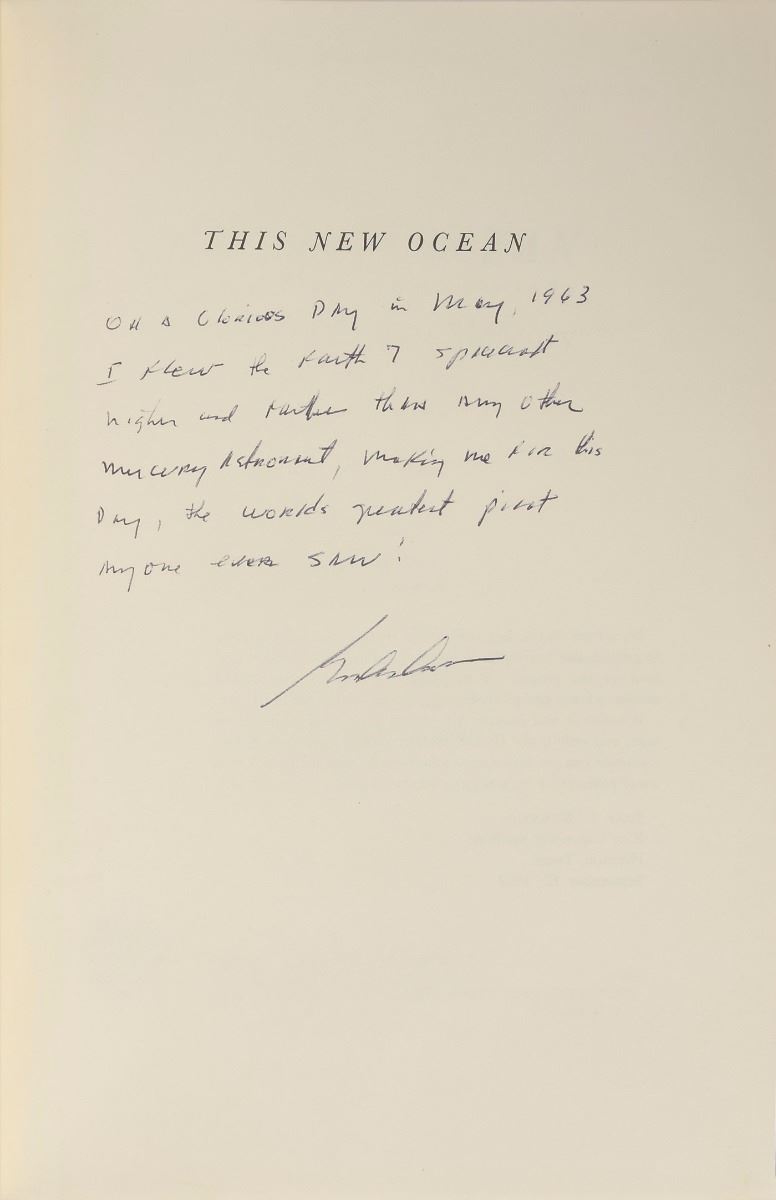 THIS NEW OCEAN
On a Glorious Day in May, 1963
I flew the Faith 7 spacecraft
higher and farther than any other
Mercury Astronaut, making me for this
Day, the worlds greatest pilot
anyone ever saw!